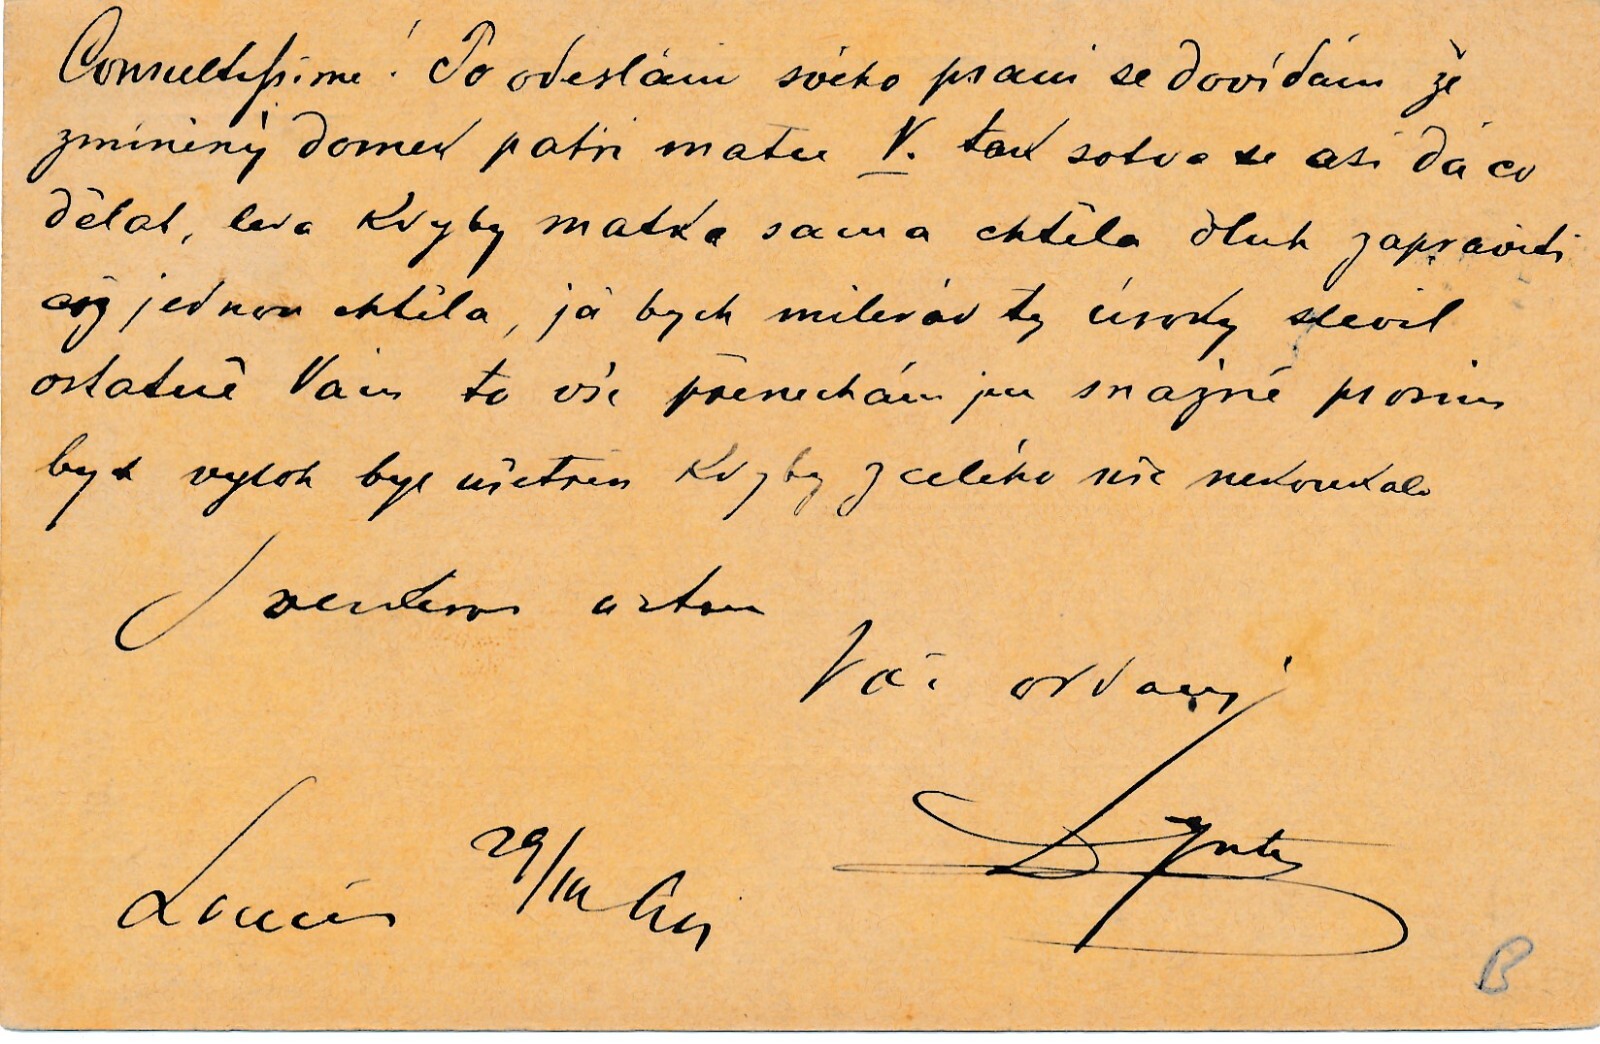 Consultissime! Po odeslání svého psaní se dovídám že
zmíněný domek patří matce V. tak sotva se asi dá co
dělat, leda kdyby matka sama chtěla dluh zapraviti
což jednou chtěla, já bych milerád ty úroky slevil
ostatně Vám to vše přenechám jen snažně prosím
bych výloh byl ušetřen kdyby z celého nic nekoukalo
úctou
Váš oddaný
29/III
B